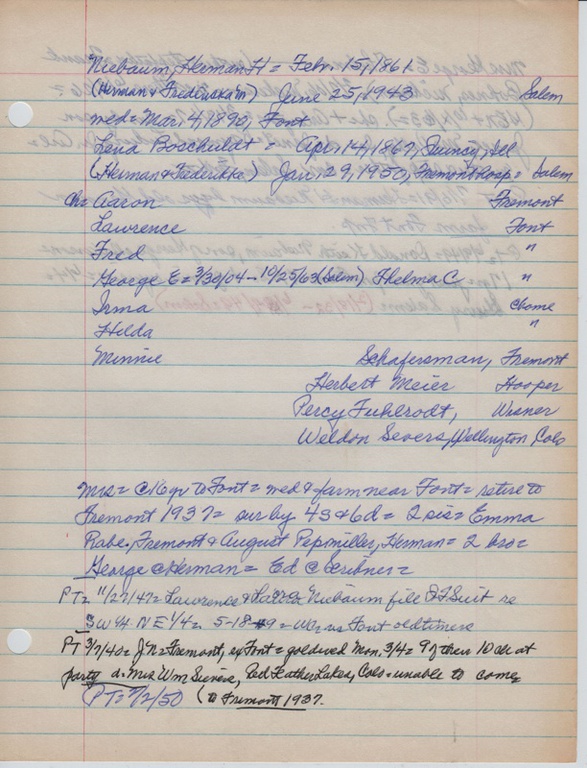 Niebaum, Herman H = Febr. 15, 1861
(Herman & Frederika) June 25, 1943 Salem
med = Mar. 4, 1890, Font
Lena Boschuldt = Apr. 14, 1867, Quincy, Ill
(Herman & Federikke) Jan. 29, 1950, Fremont hosp = Salem
Ch = Aaron Fremont
Lawrence Font
Fred "
George E = 3/30/04 - 10/25/63 (Salem) Thelma C "
Irma @home
Hilda "
Minnie Schafersman, Fremont
Herbert Meier Hooper
Percy Fuhlrodt, Wisner
Weldon Severs, Wellington, Colo
Mrs = @16 yr to Font = med & farm near Font = retire to
Fremont 1937 = sur by 4s & 6d = 2 sis = Emma
Rabe, Fremont & August Pepmiller, Herman = 2 bro =
George & Herman = Ed @ Scribner =
PT = 11/27/47 = Lawrence & Niebaum file Suit re
SW 1/4 NE 1/4 = 5-18-9 = vs Font oldtimers
PT 3/7/40 = J N = Fremont, ex Font = gold wed Mon. 3/4 = 9 of their 10 ch at
party d = Mrs Wm Sievers, Red Feather Lakes, Colo = unable to come
PT = 2/2/50 (to Fremont 1937.